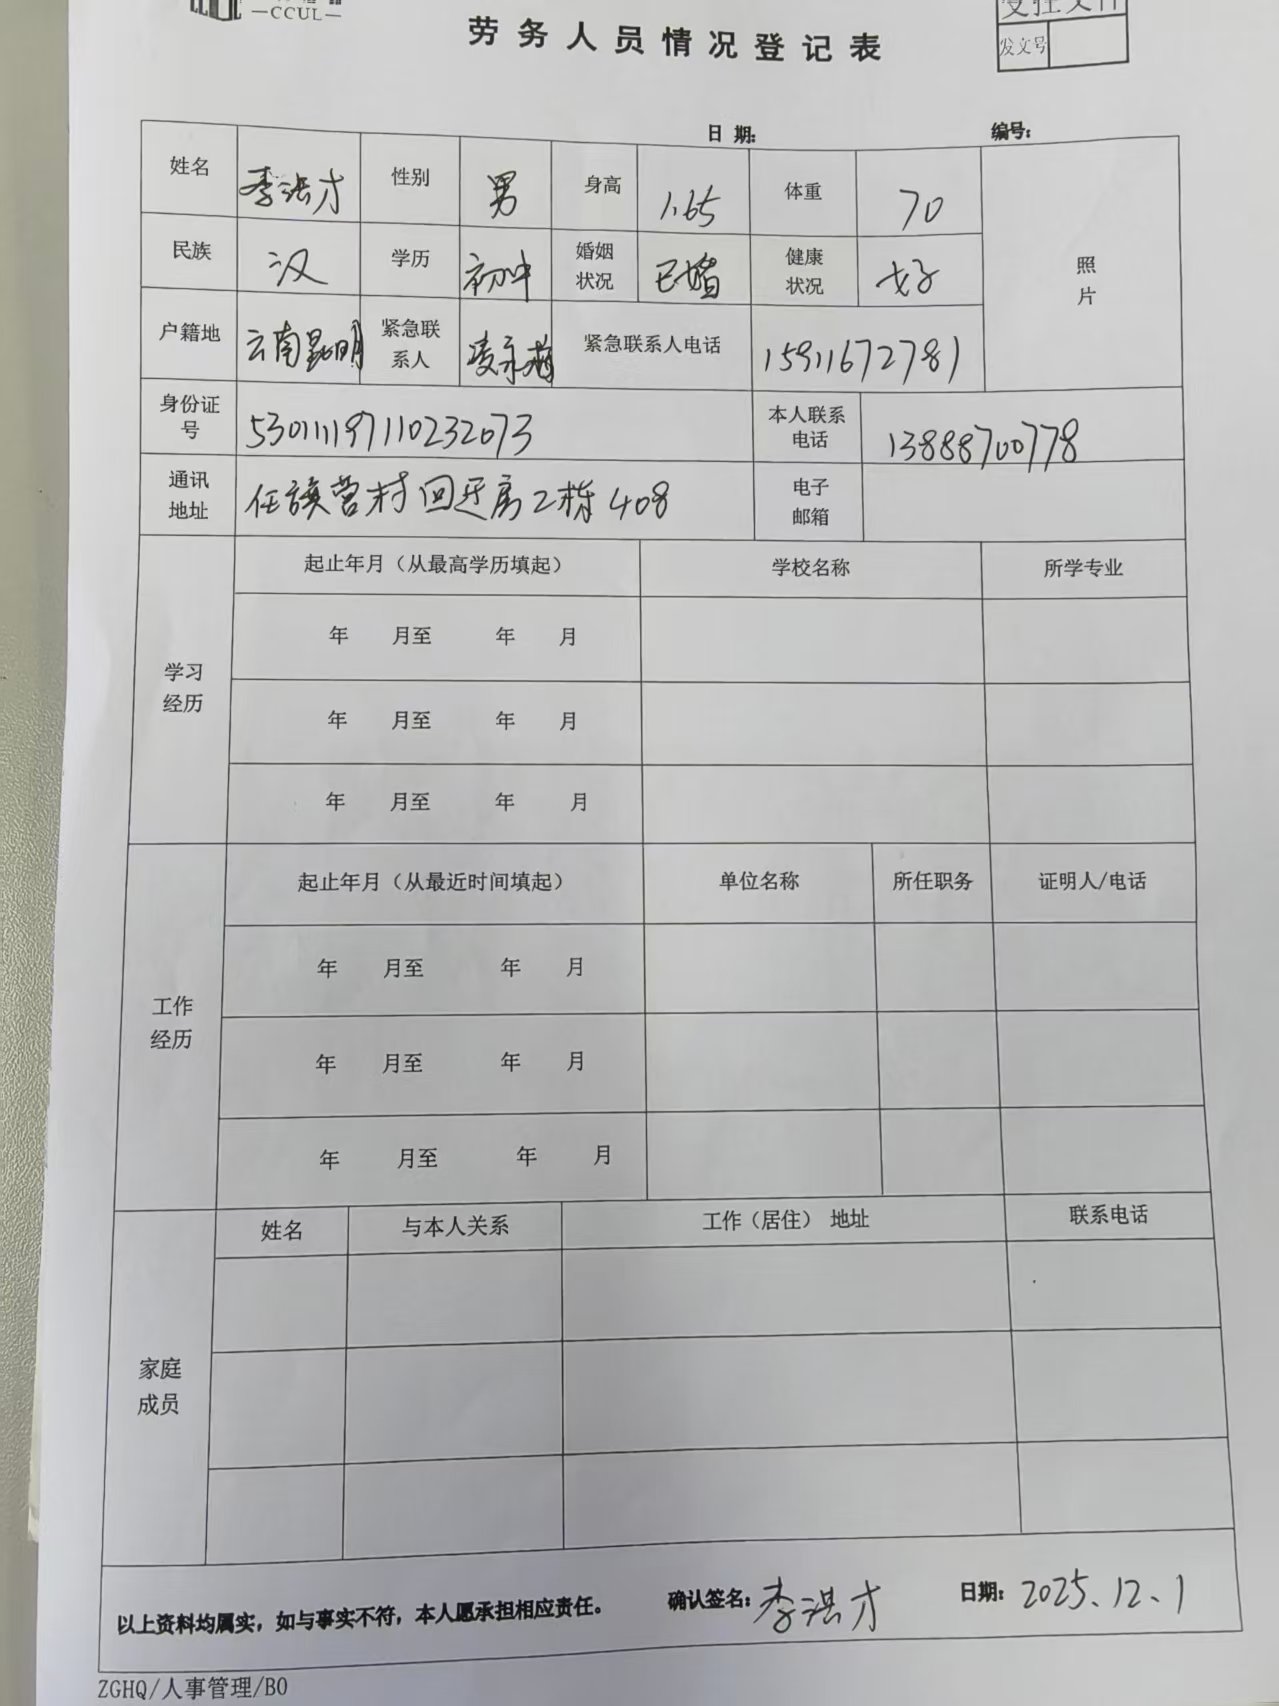 —CCUL—
劳务人员情况登记表
受控文件
发文号
日 期: 编号:
姓名 李洪才 性别 男 身高 1.65 体重 70 照片
民族 汉 学历 初中 婚姻状况 已婚 健康状况 好
户籍地 云南昆明 紧急联系人 凌永 紧急联系人电话 15911672781
身份证号 530111197110232073 本人联系电话 13888700778
通讯地址 任旗营村回迁房2栋408 电子邮箱
学习经历 起止年月（从最高学历填起） 学校名称 所学专业
年 月至 年 月
年 月至 年 月
年 月至 年 月
工作经历 起止年月（从最近时间填起） 单位名称 所任职务 证明人/电话
年 月至 年 月
年 月至 年 月
年 月至 年 月
家庭成员 姓名 与本人关系 工作（居住） 地址 联系电话
以上资料均属实，如与事实不符，本人愿承担相应责任。 确认签名: 李洪才 日期: 2025.12.1
ZGHQ/人事管理/B0